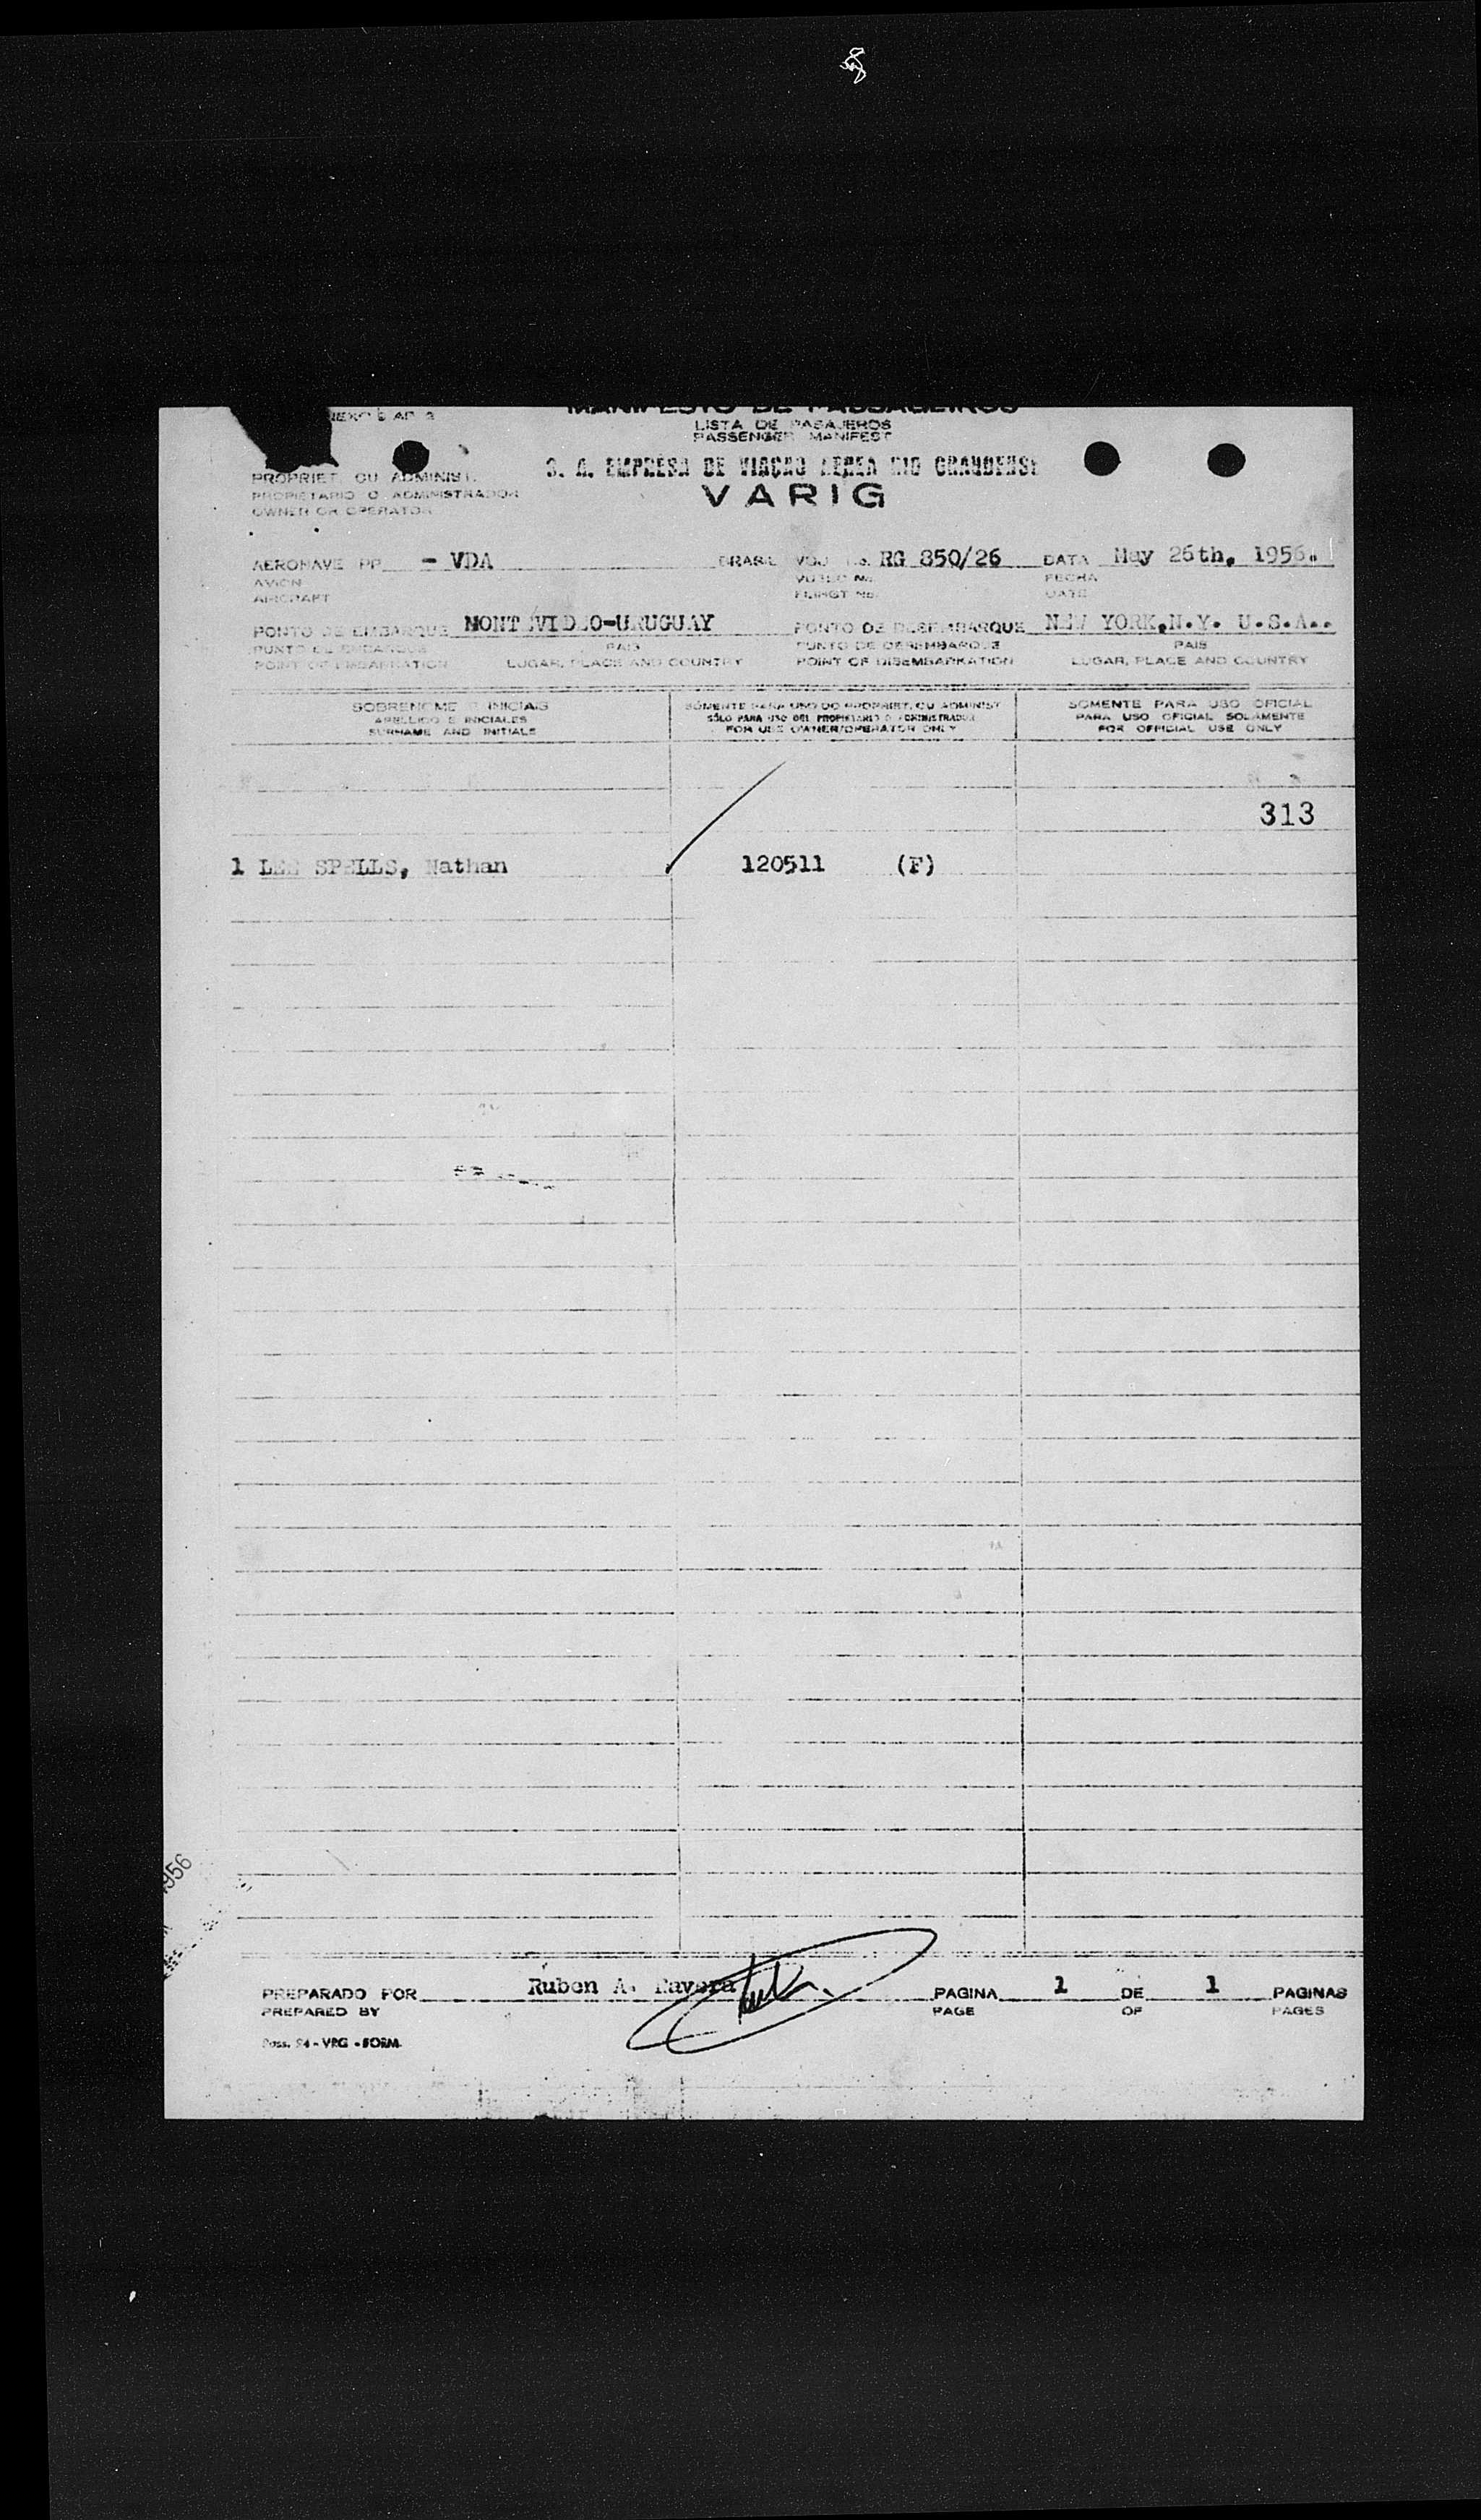 MANIFESTO DE PASSAGEIROS
LISTA DE PASAJEROS
PASSENGER MANIFEST
S. A. EMPRESA DE VIAÇÃO AÉREA RIO GRANDENSE
VARIG
PROPRIET. OU ADMINIST.
PROPIETARIO O ADMINISTRADOR
OWNER OR OPERATOR
AERONAVE PP - VDA BRASIL VOO No. RG 850/26 DATA May 26th, 1956.
AVION VUELO No. FECHA
AIRCRAFT FLIHGT No. DATE
PONTO DE EMBARQUE MONTEVIDEO-URUGUAY PONTO DE DESEMBARQUE NEW YORK,N.Y. U.S.A..
PUNTO DE EMBARQUE PAIS PUNTO DE DESEMBARQUE PAIS
POINT OF EMBARKATION LUGAR, PLACE AND COUNTRY POINT OF DISEMBARKATION LUGAR, PLACE AND COUNTRY
SOBRENOME E INICIAIS SÓMENTE PARA USO DO PROPRIET. OU ADMINIST SOMENTE PARA USO OFICIAL
APELLIDO E INICIALES SÓLO PARA USO DEL PROPIETARIO O ADMINISTRADOR PARA USO OFICIAL SOLAMENTE
SURNAME AND INITIALS FOR USE OWNER/OPERATOR ONLY FOR OFFICIAL USE ONLY
313
1 LEE SPELLS, Nathan 120511 (F)
956
PREPARADO POR Ruben A. Tavera PAGINA 1 DE 1 PAGINAS
PREPARED BY PAGE OF PAGES
Pass. 94 - VRG - FORM.